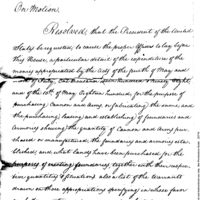 On Motion,
Resolved, that the President of the United
States be requested to cause the proper Officers to lay before
this House, a particular detail of the expenditure of the
monies appropriated by the acts of the fourth of May and
of July, One thousand seven hundred & ninety eight,
and of the 10th of May, Eighteen hundred, for the purpose of
purchasing Cannon and Arms or fabricating the same, and
the purchasing, leasing and establishing of foundaries and
armories shewing the quantity of Cannon and Arms pur
chased or manufactured, the foundaries and armories esta
blished, and what lands have been purchased for the
purposes of erecting foundaries, together with their respec
tive quantity & situations also a list of the warrants
drawn on these appropriations specifying in whose favor